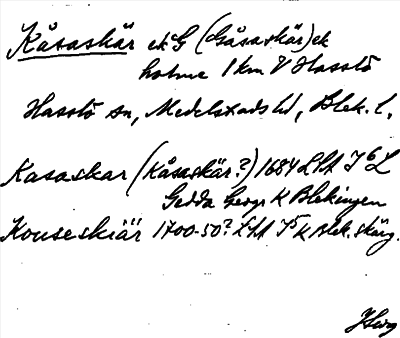 Kåsaskär ek G (Gåsaskär) ek
holme 1 km V Hasslö
Hasslö sn, Medelstads hd, Blek. l.
Kasaskar (Kåsaskär?) 1684 LSA
Gedda Geogr K Blekingen
Kouseskiär 1700-50? LSA K Blek. skärg.